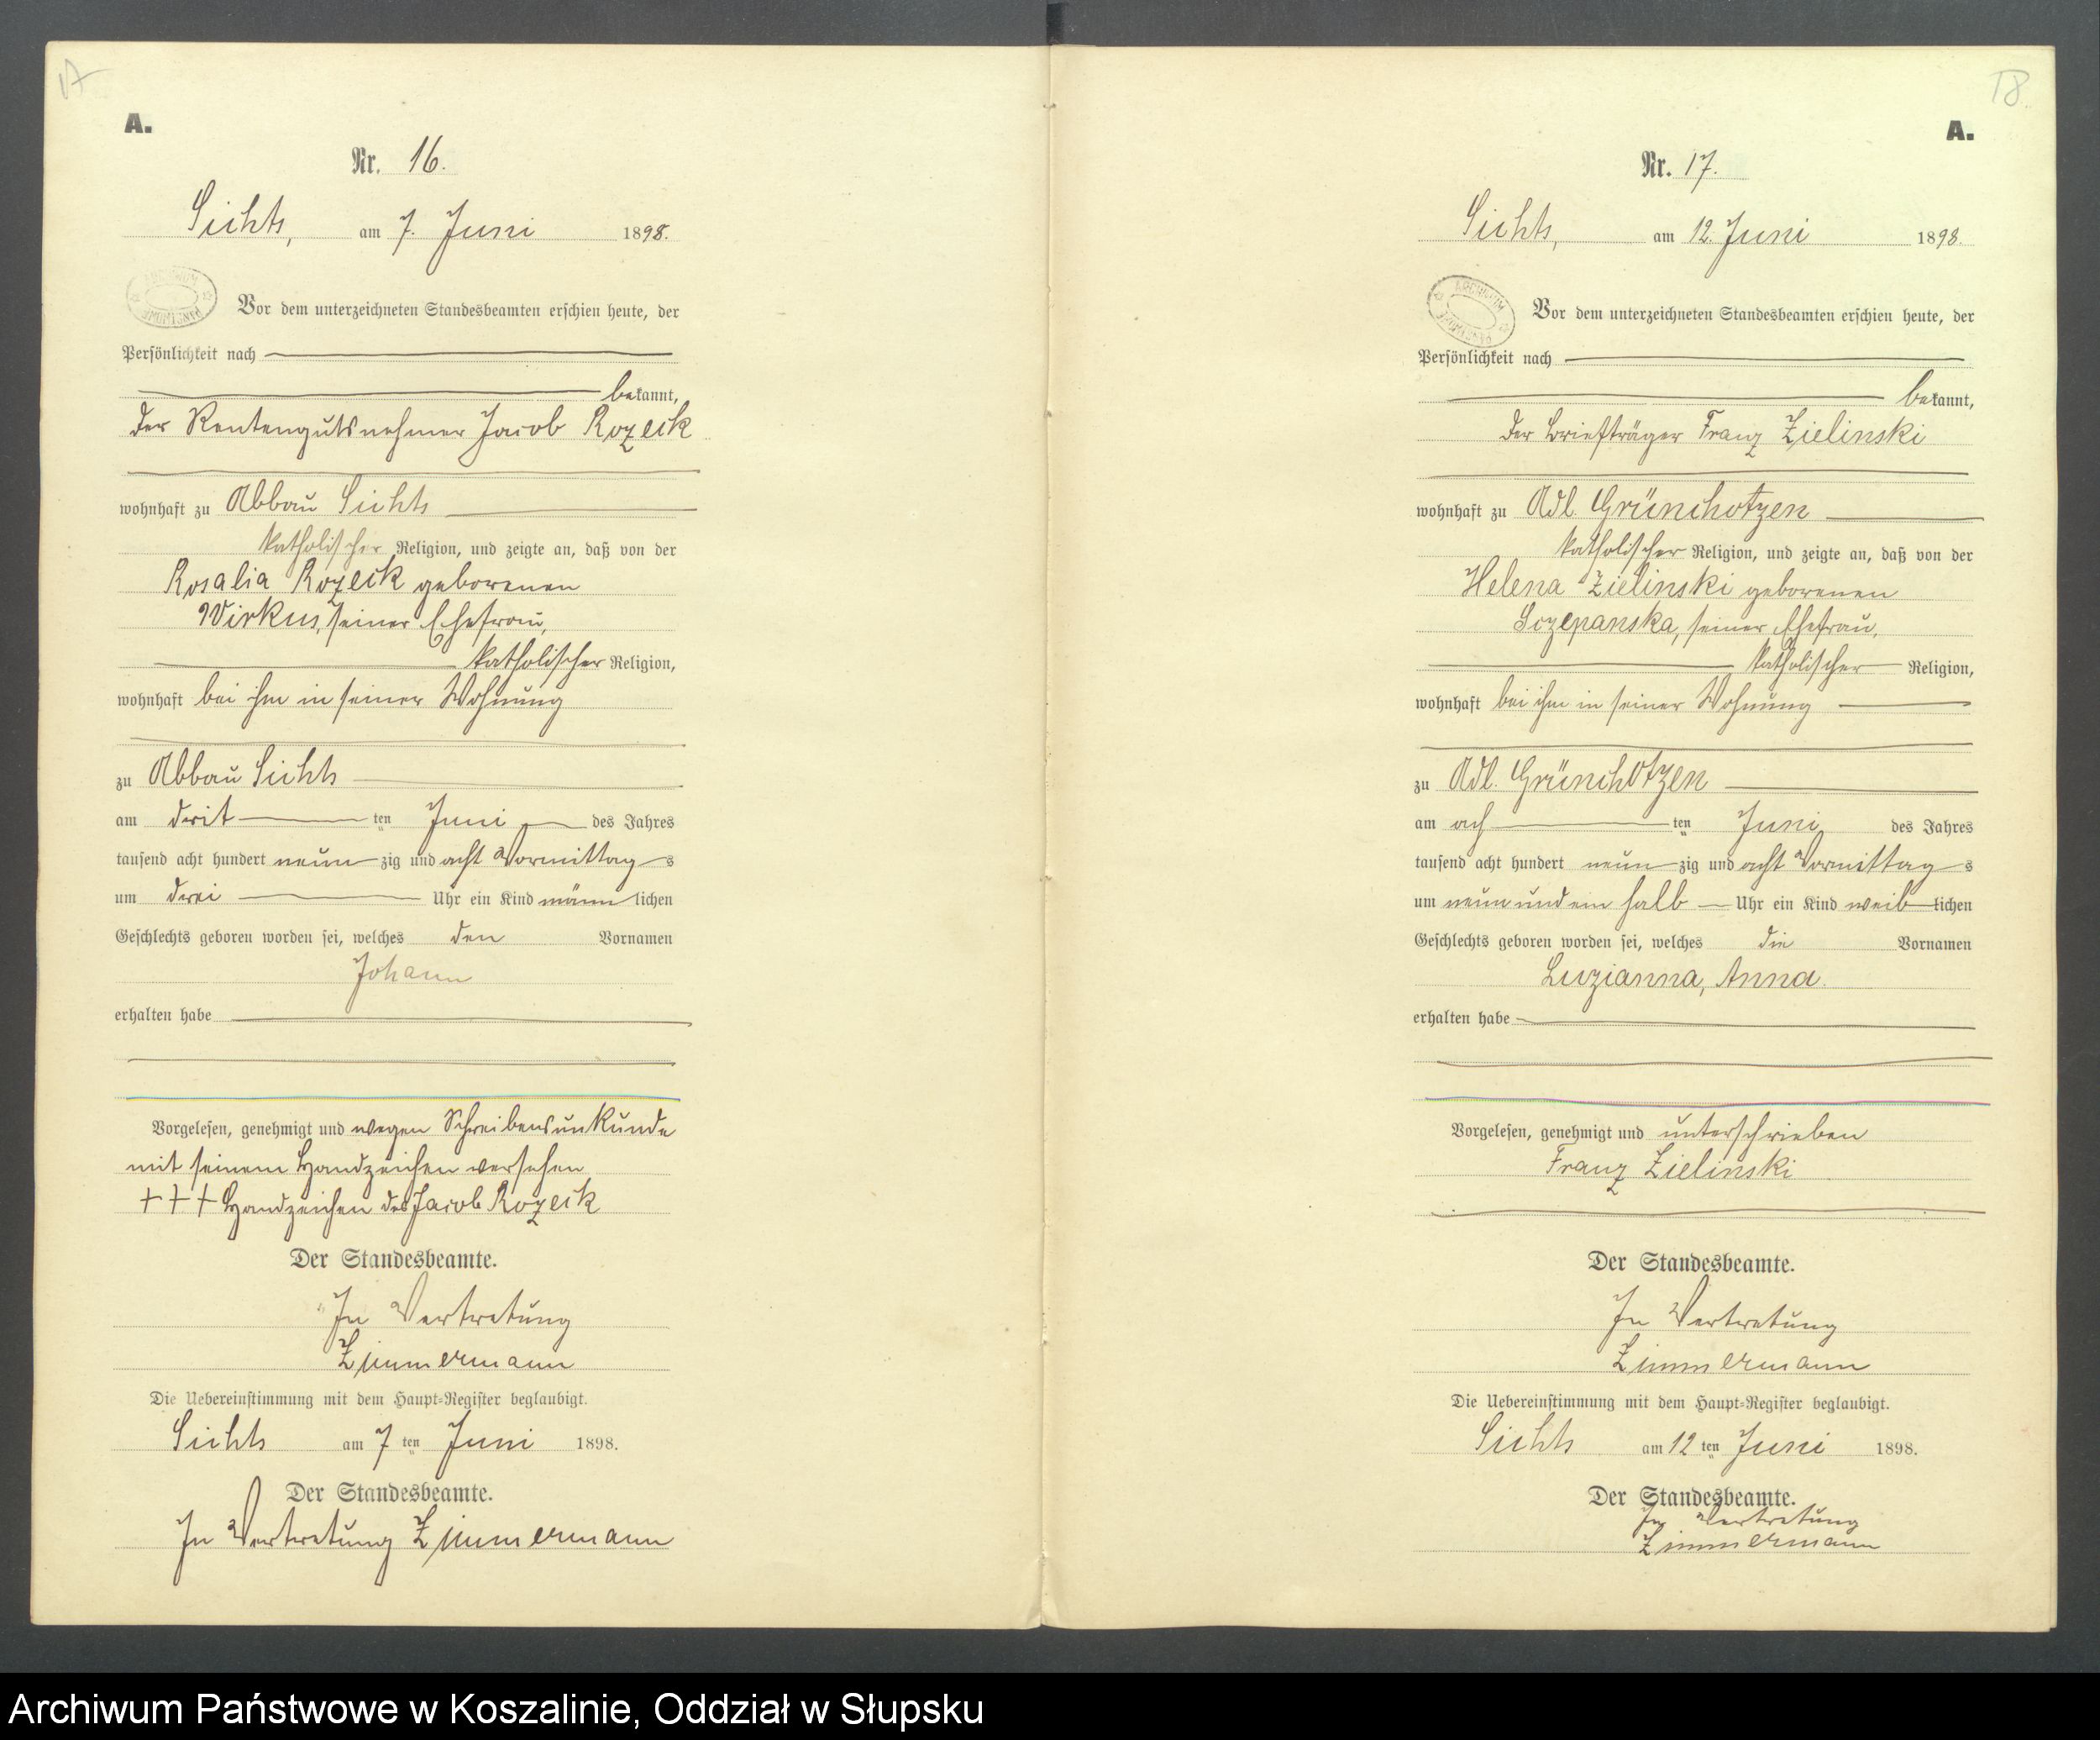 17
A.
Nr. 16.
Sichts, am 7. Juni 1898.
ARCHIWUM PAŃSTWOWE
Vor dem unterzeichneten Standesbeamten erschien heute, der
Persönlichkeit nach
bekannt,
der Rentengutsnehmer Jacob Rozeck
wohnhaft zu Abbau Sichts
katholischer Religion, und zeigte an, daß von der
Rosalia Rozeck geborenen
Wirkus, seiner Ehefrau,
katholischer Religion,
wohnhaft bei ihm in seiner Wohnung
zu Abbau Sichts
am drit ten Juni des Jahres
tausend acht hundert neun zig und acht Vormittag s
um drei Uhr ein Kind männ lichen
Geschlechts geboren worden sei, welches den Vornamen
Johann
erhalten habe
Vorgelesen, genehmigt und wegen Schreibensunkunde
mit seinem Handzeichen versehen
+++ Handzeichen des Jacob Rozeck
Der Standesbeamte.
In Vertretung
Zimmermann
Die Uebereinstimmung mit dem Haupt-Register beglaubigt.
Sichts am 7 ten Juni 1898.
Der Standesbeamte.
In Vertretung Zimmermann
18
A.
Nr. 17.
Sichts, am 12. Juni 1898.
ARCHIWUM PAŃSTWOWE
Vor dem unterzeichneten Standesbeamten erschien heute, der
Persönlichkeit nach
bekannt,
der Briefträger Franz Zielinski
wohnhaft zu Adl. Grünchotzen
katholischer Religion, und zeigte an, daß von der
Helena Zielinski geborenen
Sczepanska, seiner Ehefrau,
katholischer Religion,
wohnhaft bei ihm in seiner Wohnung
zu Adl. Grünchotzen
am ach ten Juni des Jahres
tausend acht hundert neun zig und acht Vormittag s
um neun und ein halb Uhr ein Kind weib lichen
Geschlechts geboren worden sei, welches die Vornamen
Luzianna, Anna.
erhalten habe
Vorgelesen, genehmigt und unterschrieben
Franz Zielinski
Der Standesbeamte.
In Vertretung
Zimmermann
Die Uebereinstimmung mit dem Haupt-Register beglaubigt.
Sichts am 12 ten Juni 1898.
Der Standesbeamte.
In Vertretung
Zimmermann
Archiwum Państwowe w Koszalinie, Oddział w Słupsku